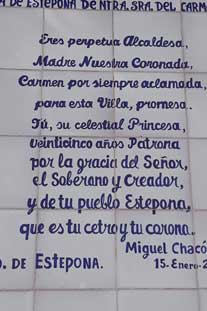 DE ESTEPONA DE NTRA. SRA. DEL CARM
Eres perpetua Alcaldesa,
Madre Nuestra Coronada,
Carmen por siempre aclamada,
para esta Villa, promesa.
Tú, su celestial Princesa,
veinticinco años Patrona
por la gracia del Señor,
el Soberano y Creador,
y de tu pueblo Estepona,
que es tu cetro y tu corona.
Miguel Chacó
. DE ESTEPONA.
15-Enero-2